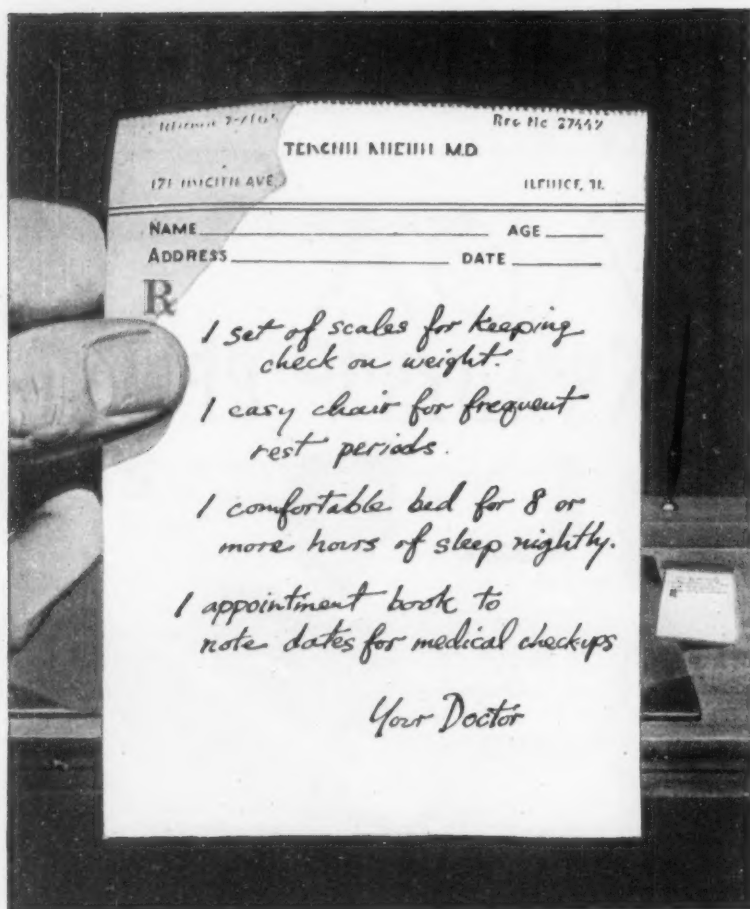 Reg No 27447
M.D.
AVE.
NAME AGE
ADDRESS DATE
℞
1 set of scales for keeping
check on weight.
1 easy chair for frequent
rest periods.
1 comfortable bed for 8 or
more hours of sleep nightly.
1 appointment book to
note dates for medical checkups
Your Doctor